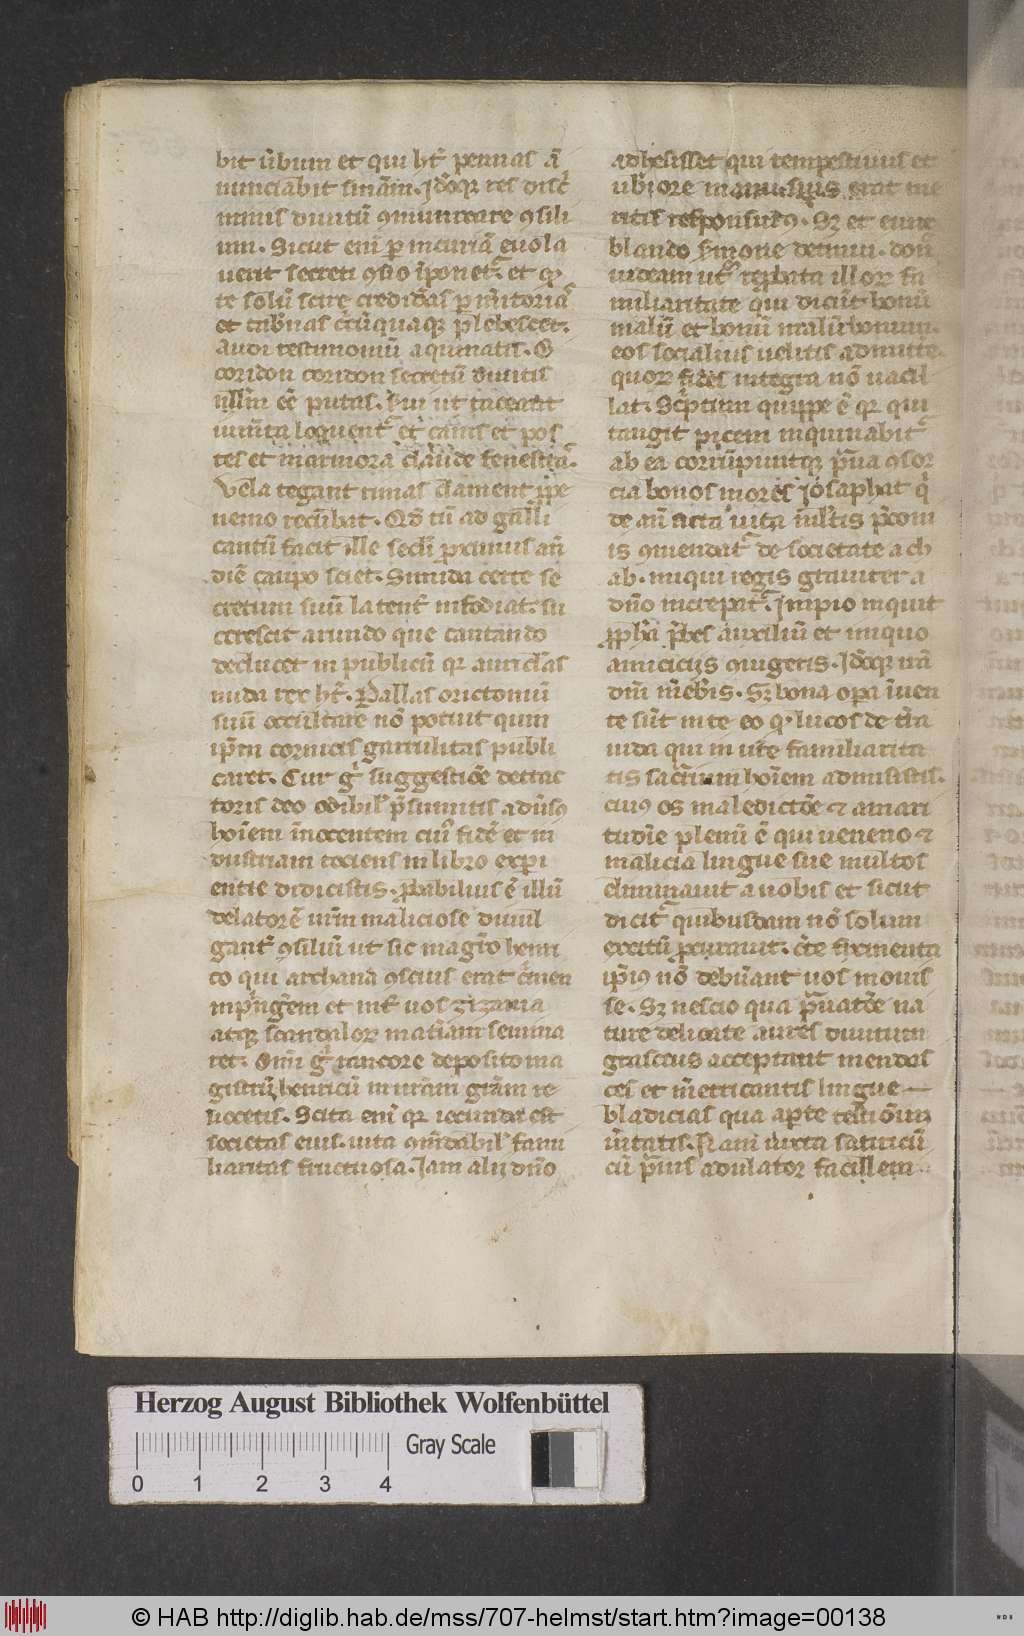 bit ũbum et qui hr̃ pennas ã
nunciabit sm̃am. Jdoq res disc̃
minus diuitũ ꝯmunicare ꝯsili
um. Sicut eni ꝑ incuriã euola
uerit secreti ꝯsio
te solũ scire credidas
et tab̃nas
audi testimoniũ aquinatis. O
coridon coridon secretũ diuitis
ullũ eẽ putas. serui ut taceant
ium̃ta loquent᷑ et canis et pos
tes et marmora claude fenestra
Vela tegant rimas clament ꝓpe
nemo recũbat. Qd tñ ad galli
cantũ facit ille scđi ꝓximus añ
diẽ caupo sciet. Si mida certe se
cretum suũ latent̃ infodiat. su
cerescit arundo que cantando
deducet in publicũ qꝛ auriclas
mida rex hr̃. Pallas erictoniũ
suũ occultare nõ potuit quin
ip̃m cornicis garrulitas publi
caret. Cur gͦ suggestiõe detrac
toris deo odibil̃ p̃sumitis adũsꝯ
hoiem ĩnocentem cuiꝯ fidẽ et in
dustriam tociens in libro experi
entie didicistis. Probabilius ẽ illũ
delatorẽ urm̃ maliciose diuul
gant̃ ꝯsiliũ ut sic magr̃o henri
co qui archana ꝯscius erat c̃men
inping̃em et int̃ uos zizania
atqꝫ scandaloꝝ mat̃iam semina
ret. Omi gͦ rancore deposito ma
gistrũ henricũ in uram̃ gr̃am re
uocetis. Scita eni qꝛ iocunda est
societas eius. uita ꝯmẽdabil̃ fami
liaritas fructuosa. Jam alij dñõ
adhesisset qui tempestiuus et
ub̃iore erat
ritis responsurꝯ. Sꝫ et
blando s̃mone
uideam ut᷑ reprobata illoꝝ fa
miliaritate qui dicũt bonũ
malũ et bonũ malũ bonum.
eos socialius uelitis admitte
quoꝝ fides integra nõ uacil
lat. Sc̃ptum quippe ẽ qꝛ qui
tangit picem inquinabit᷑
ab ea corrũpuntqꝫ praua ꝯsor
cia bonos mores Josaphat q̃
de añ acta uita m̃ltis p̃coni
is ꝯmendat᷑ de societate ach
ab. iniqui regis grauiter a
dño increpat᷑. Jmpio inquit
ꝓpha p̃bes auxiliũ et iniquo
amicicijs ꝯiugeris. Jdoqꝫ irã
dñi m̃ebris. Sꝫ bona opa ĩuen
te sũt in te eo qꝫ lucos de t̃ra
iuda qui in ure familiarita
tis sac̃rium hoiem admisistis.
cuiꝯ os maledictõe ⁊ amari
tudĩe plenũ ẽ qui ueneno ⁊
malicia lingue sue multos
eliminauit a uobis et sicut
dicit᷑ quibusdam nõ solum
exciciũ ꝓcurauit. c̃te figmenta
ip̃iꝯ nõ debũant uos mouis
se. Sꝫ nescio qua pruatõe na
ture delicate aures diuitum
gratius acceptant mendas
ces et m̃etricantis lingue
bladicias qua apte testiõium
ũitatis. Nam iuxta satiricũ
cũ prius adulator facillem
Herzog August Bibliothek Wolfenbüttel
0 1 2 3 4 Gray Scale
© HAB http://diglib.hab.de/mss/707-helmst/start.htm?image=00138